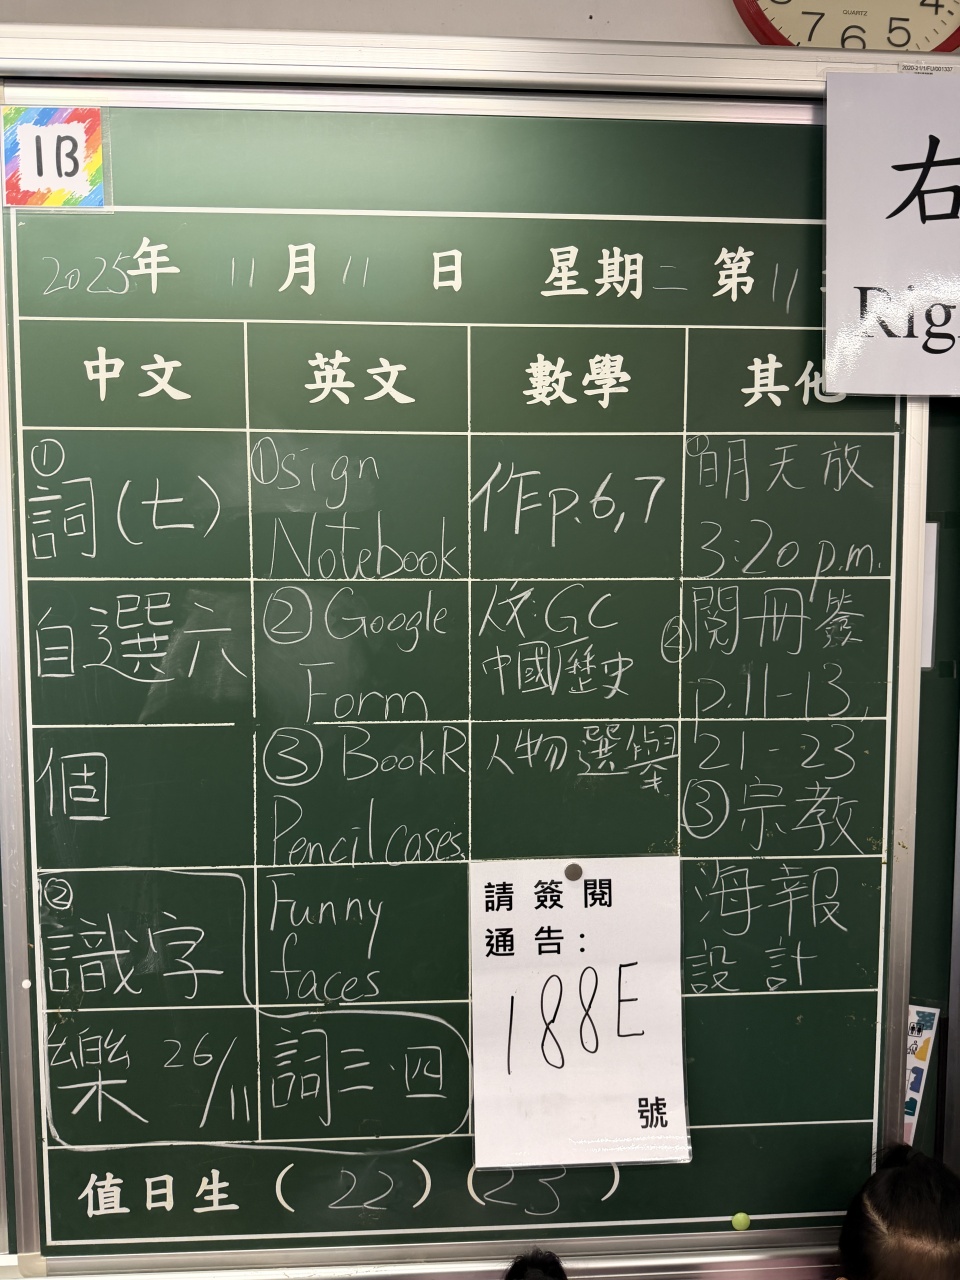 7 6 5 4
QUARTZ
2020-21/1/FU/001337
1B
右
Rig
2025年 11月11日 星期二 第11
中文 英文 數學 其他
①
詞(七)
自選六
個
②
識字
樂 26/11
①Sign
Notebook
②Google
Form
③BookR
Pencil cases
Funny
faces
詞三.四
作p.6,7
人文:GC
中國歷史
人物選舉
請簽閱
通告:
188E
號
①明天放
3:20 p.m.
②閱冊簽
p.11-13,
21-23
③宗教
海報
設計
值日生 (22) (23)